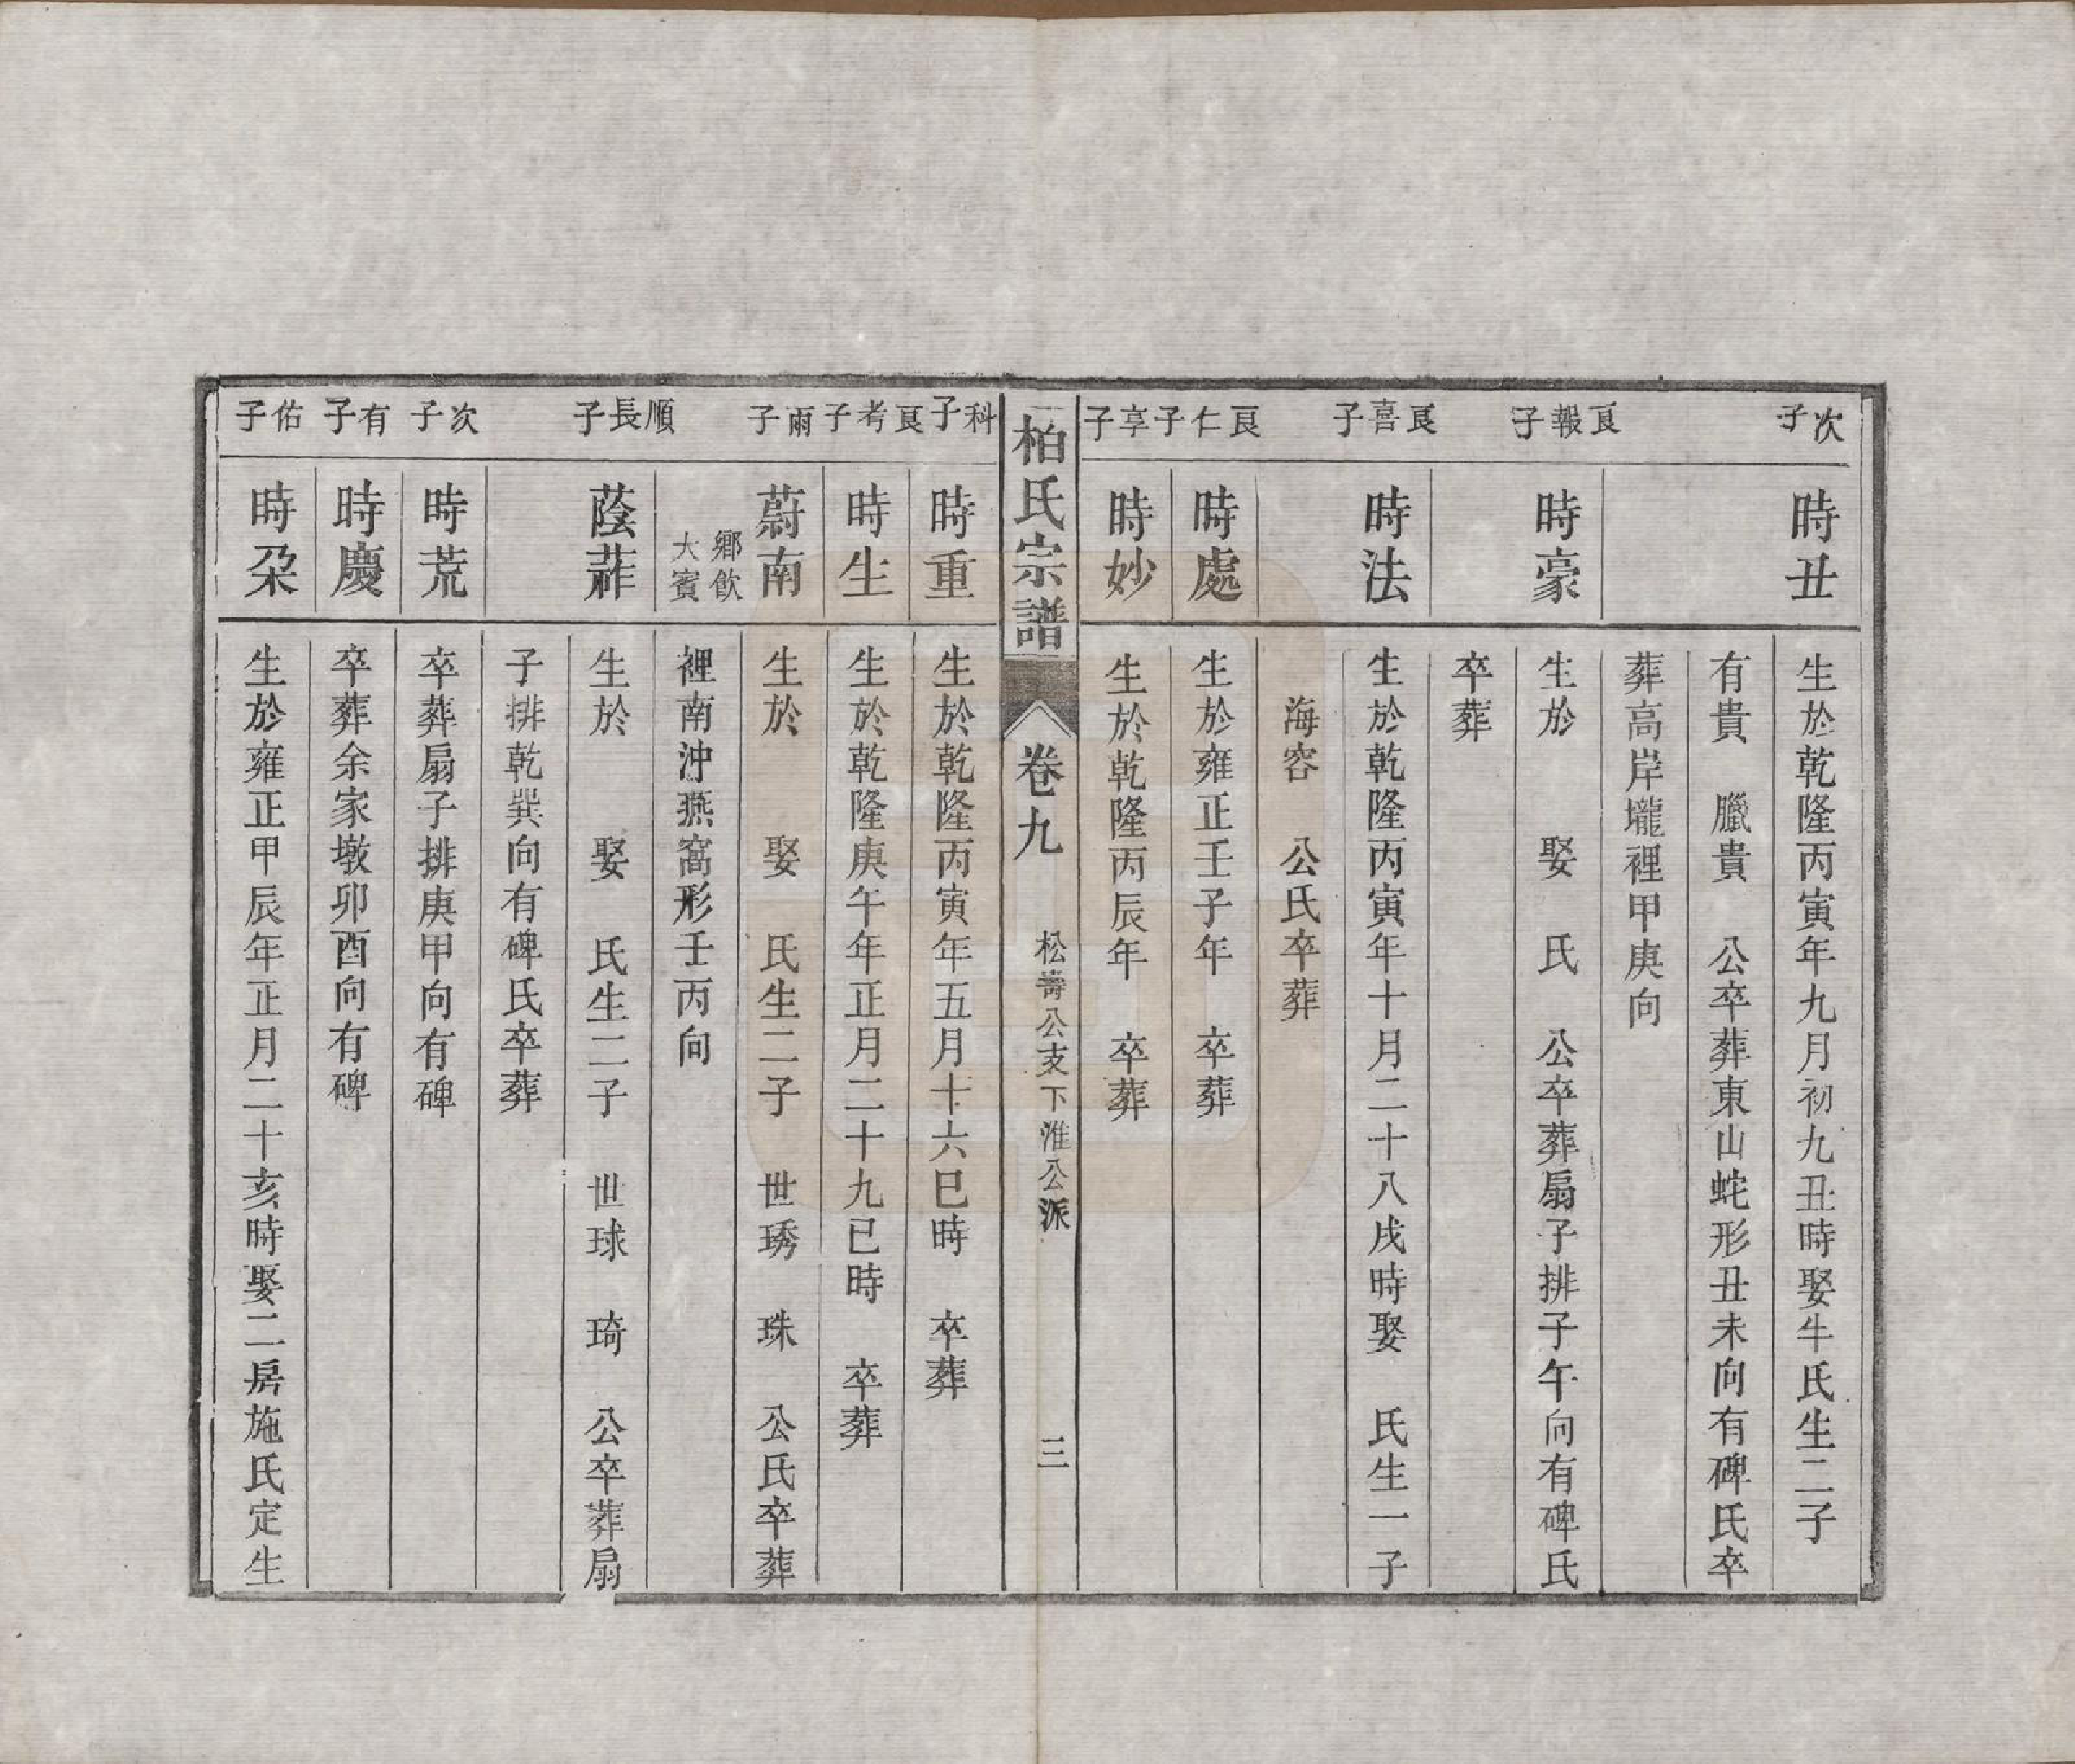 次子
時丑
生於乾隆丙寅年九月初九丑時娶牛氏生二子
有貴　臘貴　公卒葬東山蛇形丑未向有碑氏卒
葬高岸壠裡甲庚向
良報子
時豪
生於　　娶　氏　公卒葬扇子排子午向有碑氏
卒葬
良喜子
時法
生於乾隆丙寅年十月二十八戌時娶　氏生一子
海容　公氏卒葬
良仁子
時處
生於雍正壬子年　卒葬
享子
時妙
生於乾隆丙辰年　卒葬
柏氏宗譜　卷九　松壽公支下淮公派　三
科子
時重
生於乾隆丙寅年五月十六巳時　卒葬
良考子
時生
生於乾隆庚午年正月二十九巳時　卒葬
爾子
蔚南
鄉飲
大賓
生於　　娶　氏生二子　世琇　珠　公氏卒葬
裡南沖燕窩形壬丙向
順長子
蔭蓏
生於　　娶　氏生二子　世球　琦　公卒葬扇
子排乾巽向有碑氏卒葬
次子
時荒
卒葬扇子排庚甲向有碑
有子
時慶
卒葬余家墩卯酉向有碑
佑子
時朶
生於雍正甲辰年正月二十亥時娶二房施氏定生